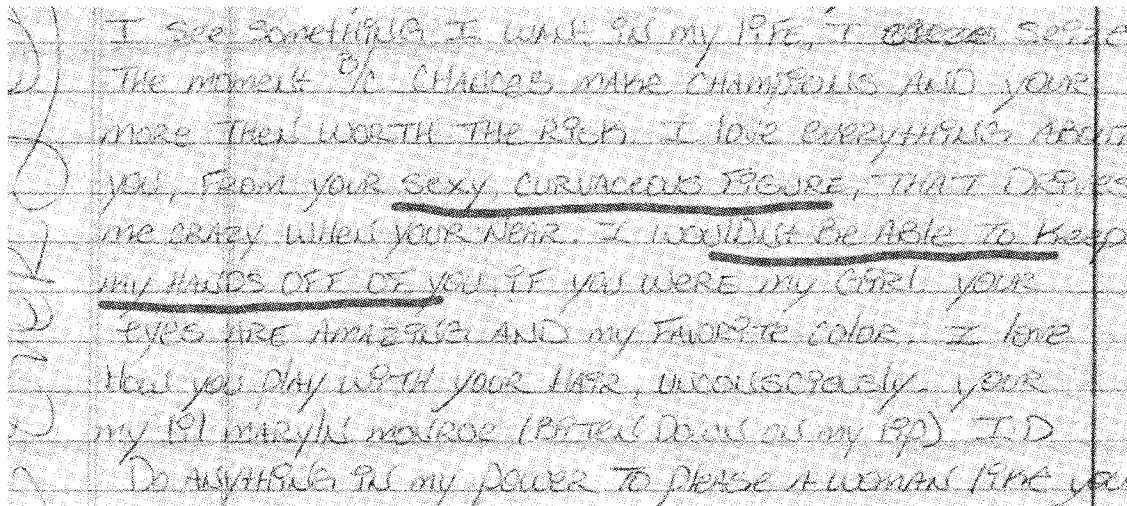 I See SomeTHING I WANt IN my lIFE, I Seize
THe momeNt B/C CHANCES MAKE CHAMPIONS AND YOUR
more THeN WORTH THE RISK. I love everytHING ABOUT
you, From your sexy, curvaceous FIGURE, THAT DRIVES
me CRAZY WHEN YOUR NEAR. I WOULDNt Be ABle To Keep
my HANDS OFF OF you, IF you WERE my GIRl. your
eyes ARE AMAZING AND my FAVORITE COlOR. I love
How you PlAY WITH YOUR HAIR, UNCONSCIOUSly. YOUR
my lil MARYlN MONROE (BITEN DOWN ON my lIP) I'D
Do ANYtHING IN my POWER TO PleASE A WOMAN lIKE you